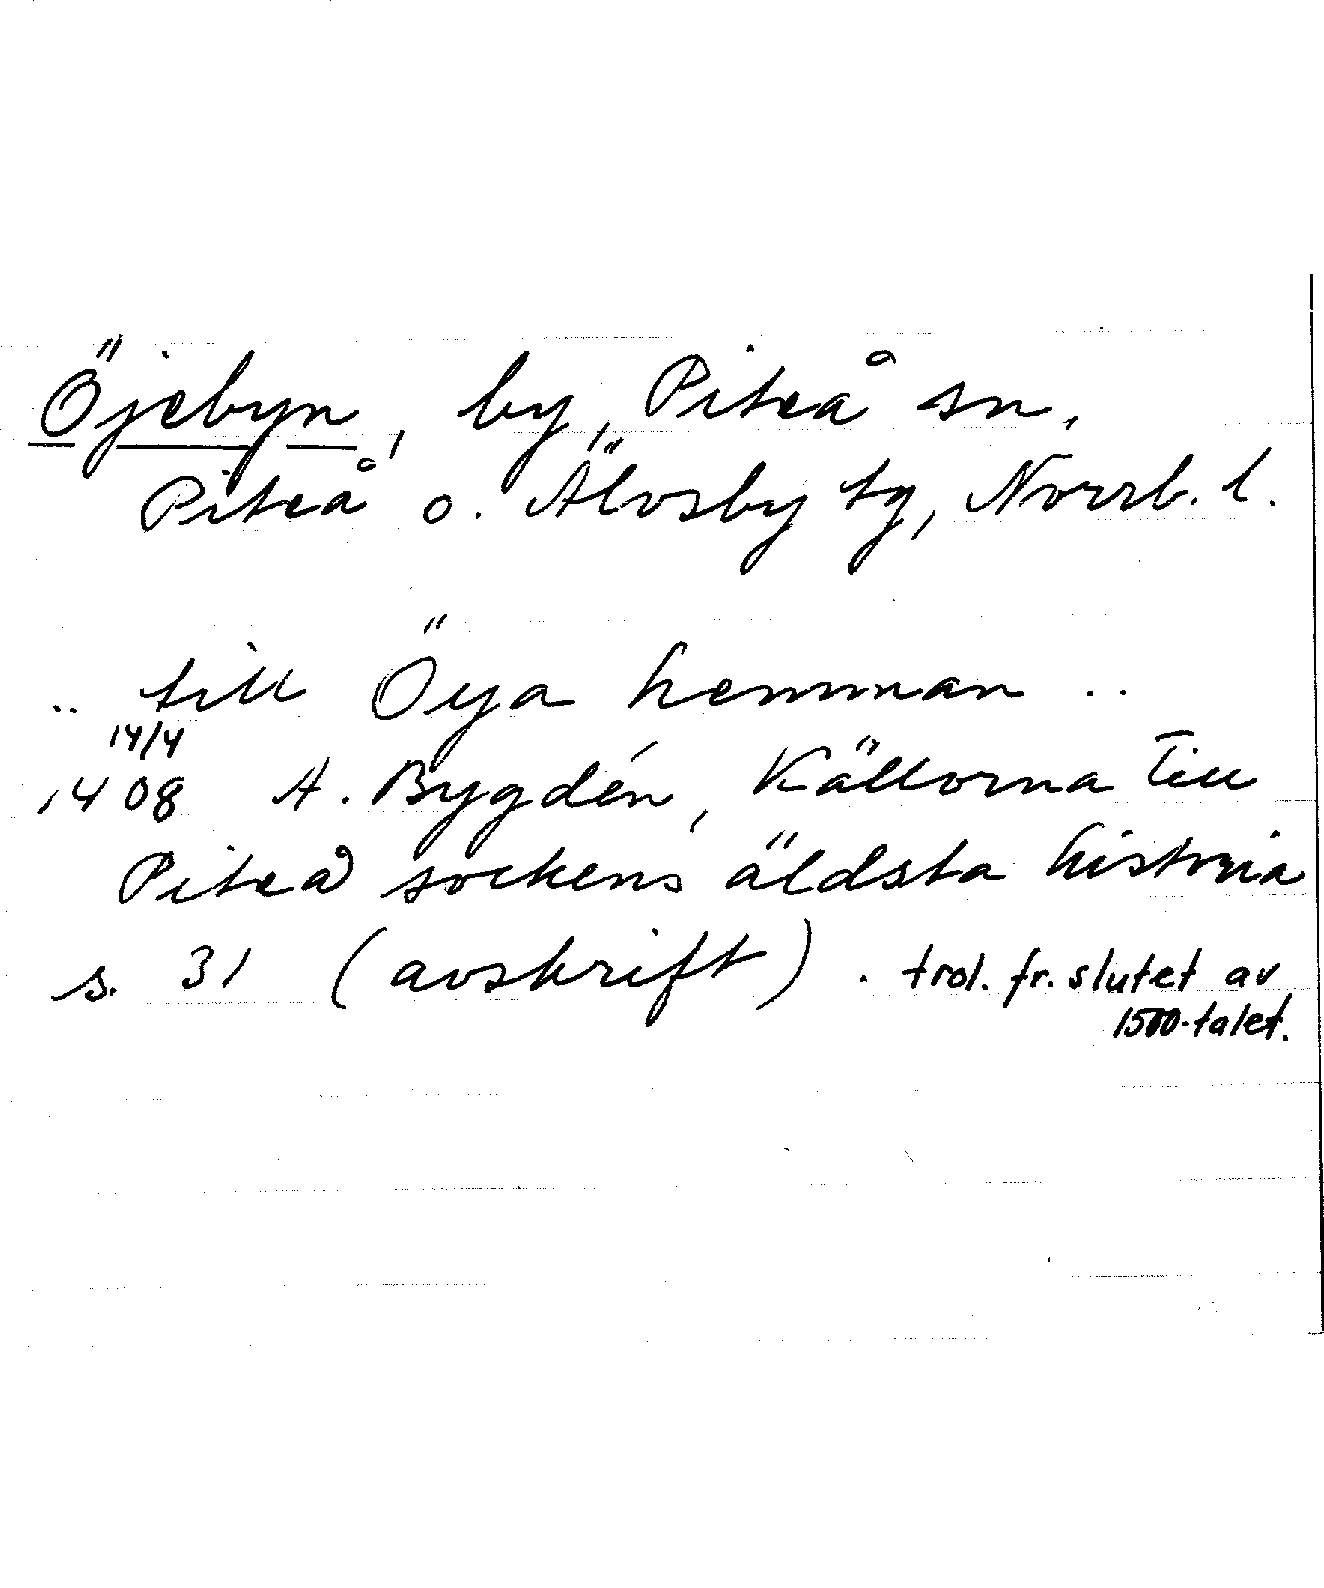 Öjebyn, by, Piteå sn,
Piteå o. Älvsby tg, Norrb. l.
.. till Öya hemman ..
14/4
1408 A. Bygdén, Källorna till
Piteå sockens äldsta historia
s. 31 (avskrift). trol. fr. slutet av
1500-talet.